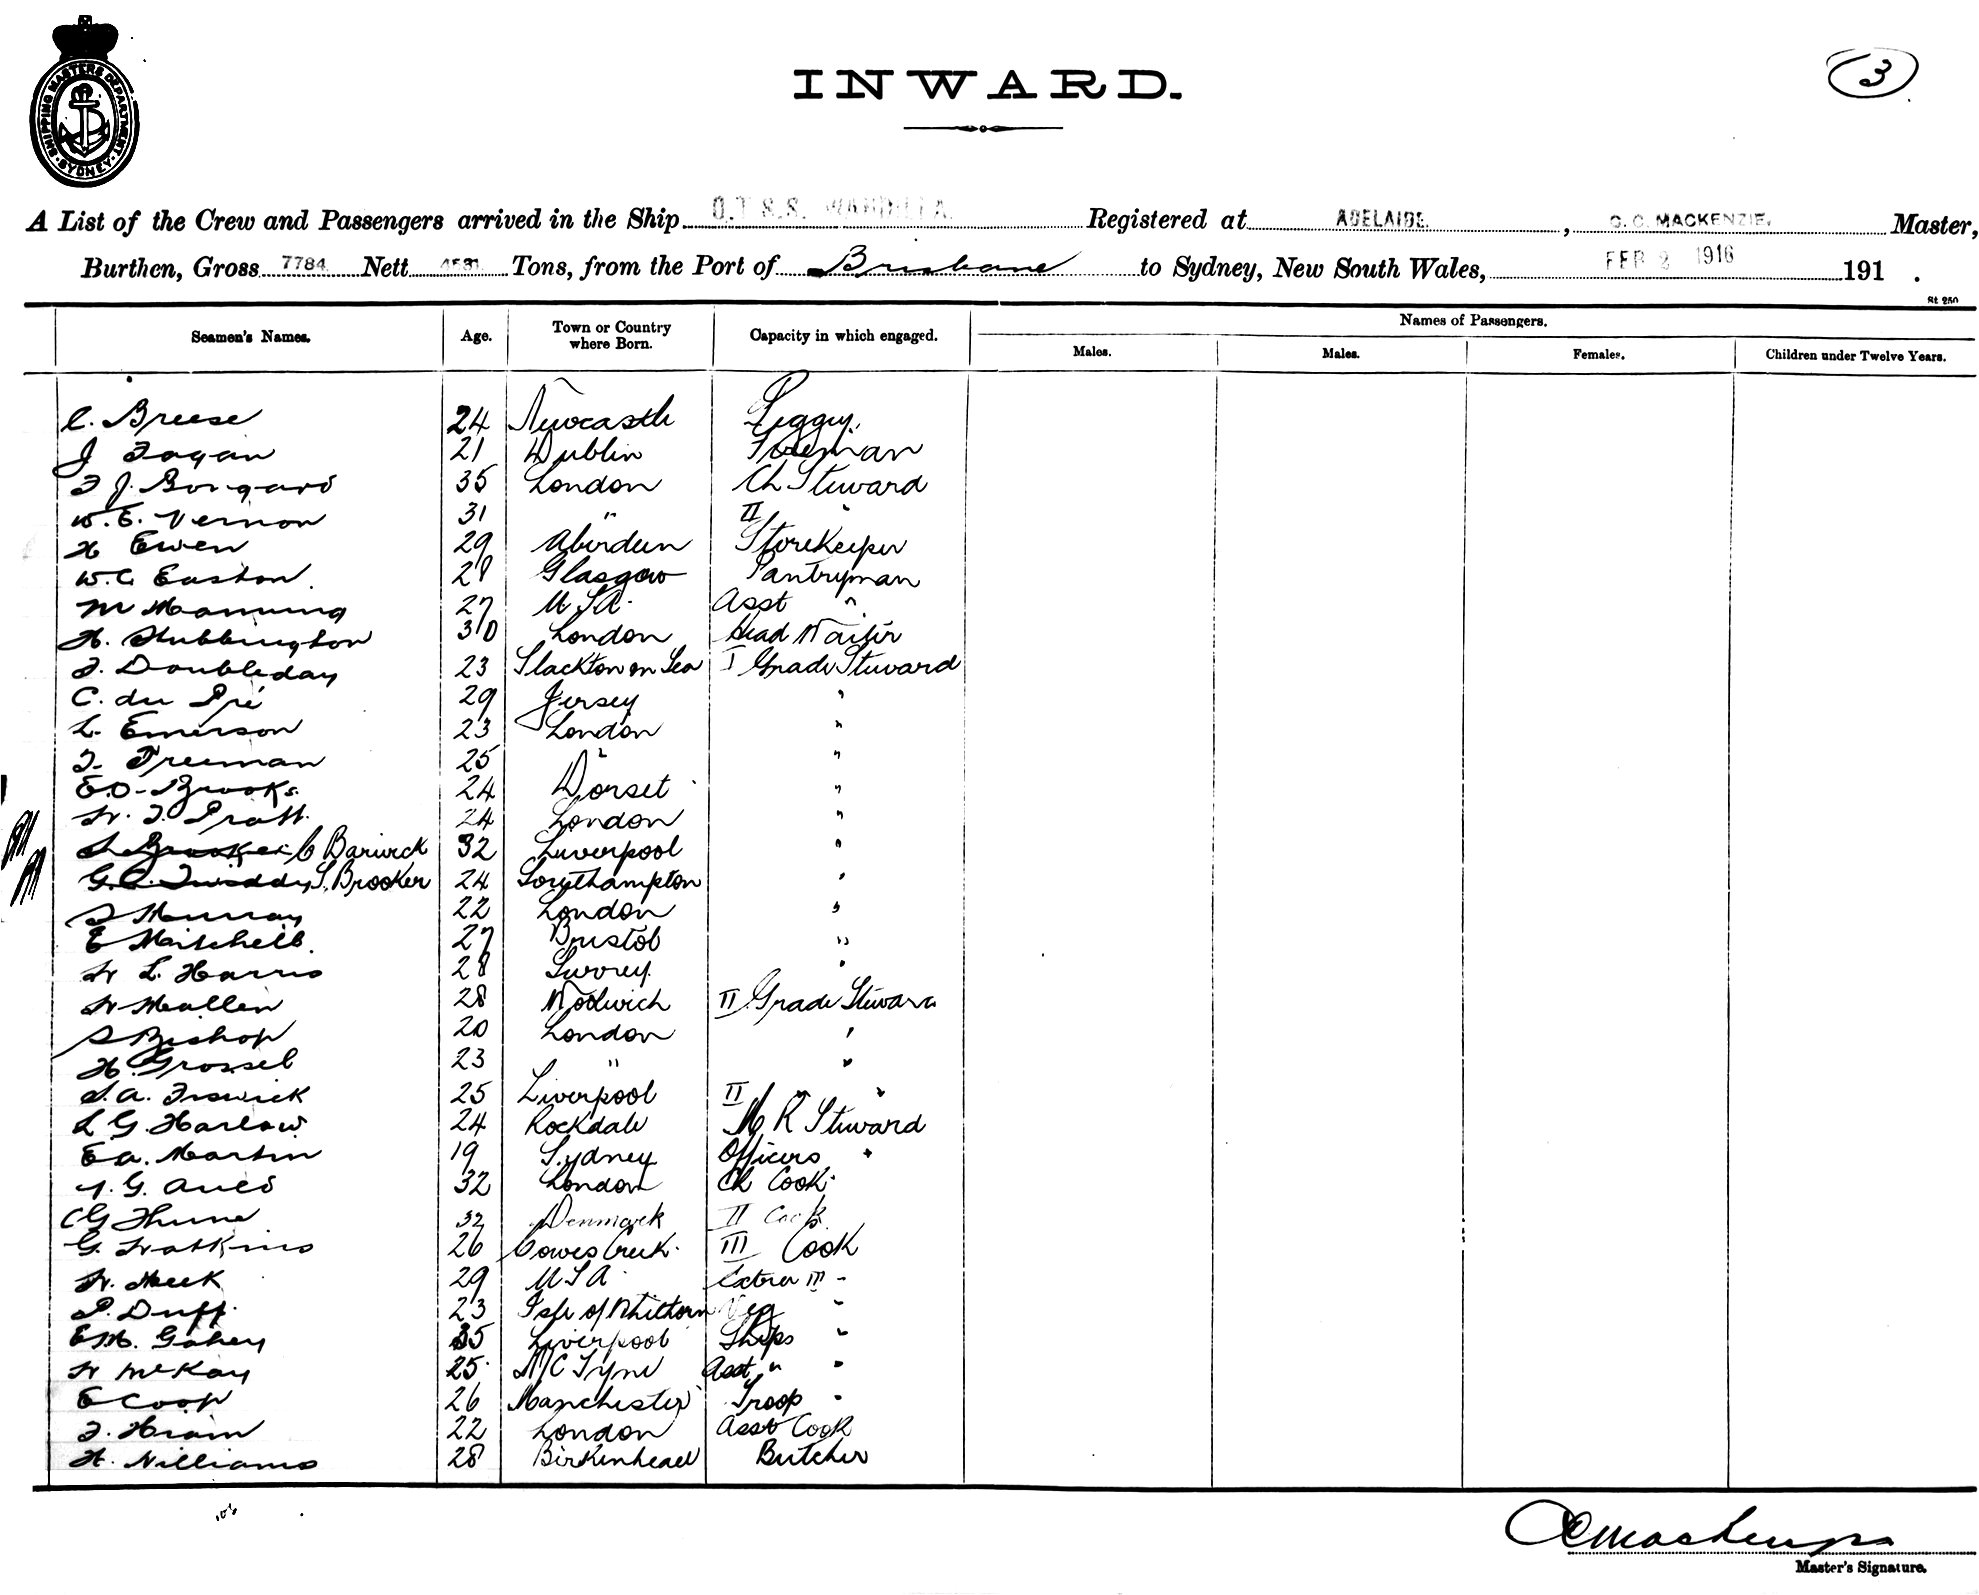 SHIPPING MASTERS DEPARTMENT · SYDNEY ·
INWARD.
3
A List of the Crew and Passengers arrived in the Ship S.S. WANDILLA. Registered at ADELAIDE. , C. C. MACKENZIE, Master,
Burthen, Gross 7784 Nett Tons, from the Port of Brisbane to Sydney, New South Wales, FEB 2 1916 191 .
St 250
Seamen's Names. Age. Town or Country where Born. Capacity in which engaged. Names of Passengers.
Males. Males. Females. Children under Twelve Years.
C. Breese 24 Newcastle Peggy
J Fagan 21 Dublin
F J. Bongard 35 London Ch Steward
W. E. Vernon 31 " II "
H Ewen 29 Aberdeen Storekeeper
W. C. Easton 28 Glasgow Pantryman
M Manning 27 USA Asst "
H. Hubbington 30 London Head Waiter
F. Doubleday 23 on Sea I Grade Steward
C. du Pré 29 Jersey "
L. Emerson 23 London "
F. Freeman 25 " "
E.O. Brooks 24 Dorset "
W. F. Pratt 24 London "
S Brooker C Barwick 32 Liverpool "
G. C. Twiddy S. Brooker 24 Southampton "
S Murray 22 London "
E Mitchell. 27 Bristol "
W L. Harris 28 Surrey "
W Mallen 28 Woolwich II Grade Steward
S Bishop 20 London "
H. Grossel 23 " "
S. A. 25 Liverpool II " "
L G. Harlow 24 Rockdale M R Steward
E A. Martin 19 Sydney Officers "
G. 32 London Ch Cook
C G Thune 32 Denmark II Cook
G. Watkins 26 Cowes Creek III Cook
W. Meek 29 USA Extra III "
P. Duff. 23 Isle of Whithorn Veg "
E M. Gahey 35 Liverpool Ships "
W McKay 25 N/C Tyne Asst " "
E Coop 26 Manchester Troop "
F. Hiam 22 London Asst Cook
H. Williams 28 Birkenhead Butcher
CC Mackenzie
Master's Signature.